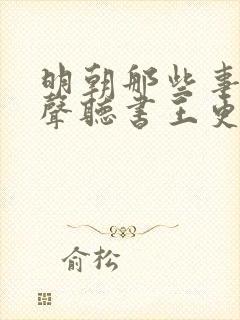 明朝那些事
聲聽書王更
俞松